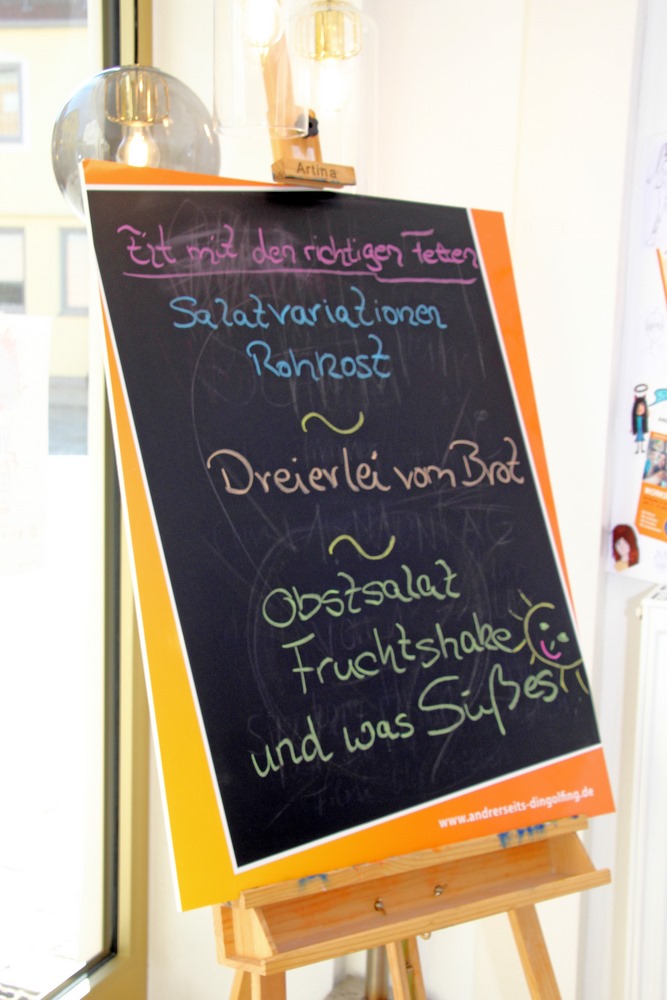 Artina
Fit mit den richtigen Fetten
Salatvariationen
Rohkost
~
Dreierlei vom Brot
~
Obstsalat
Fruchtshake
und was Süßes
www.andrerseits-dingolfing.de